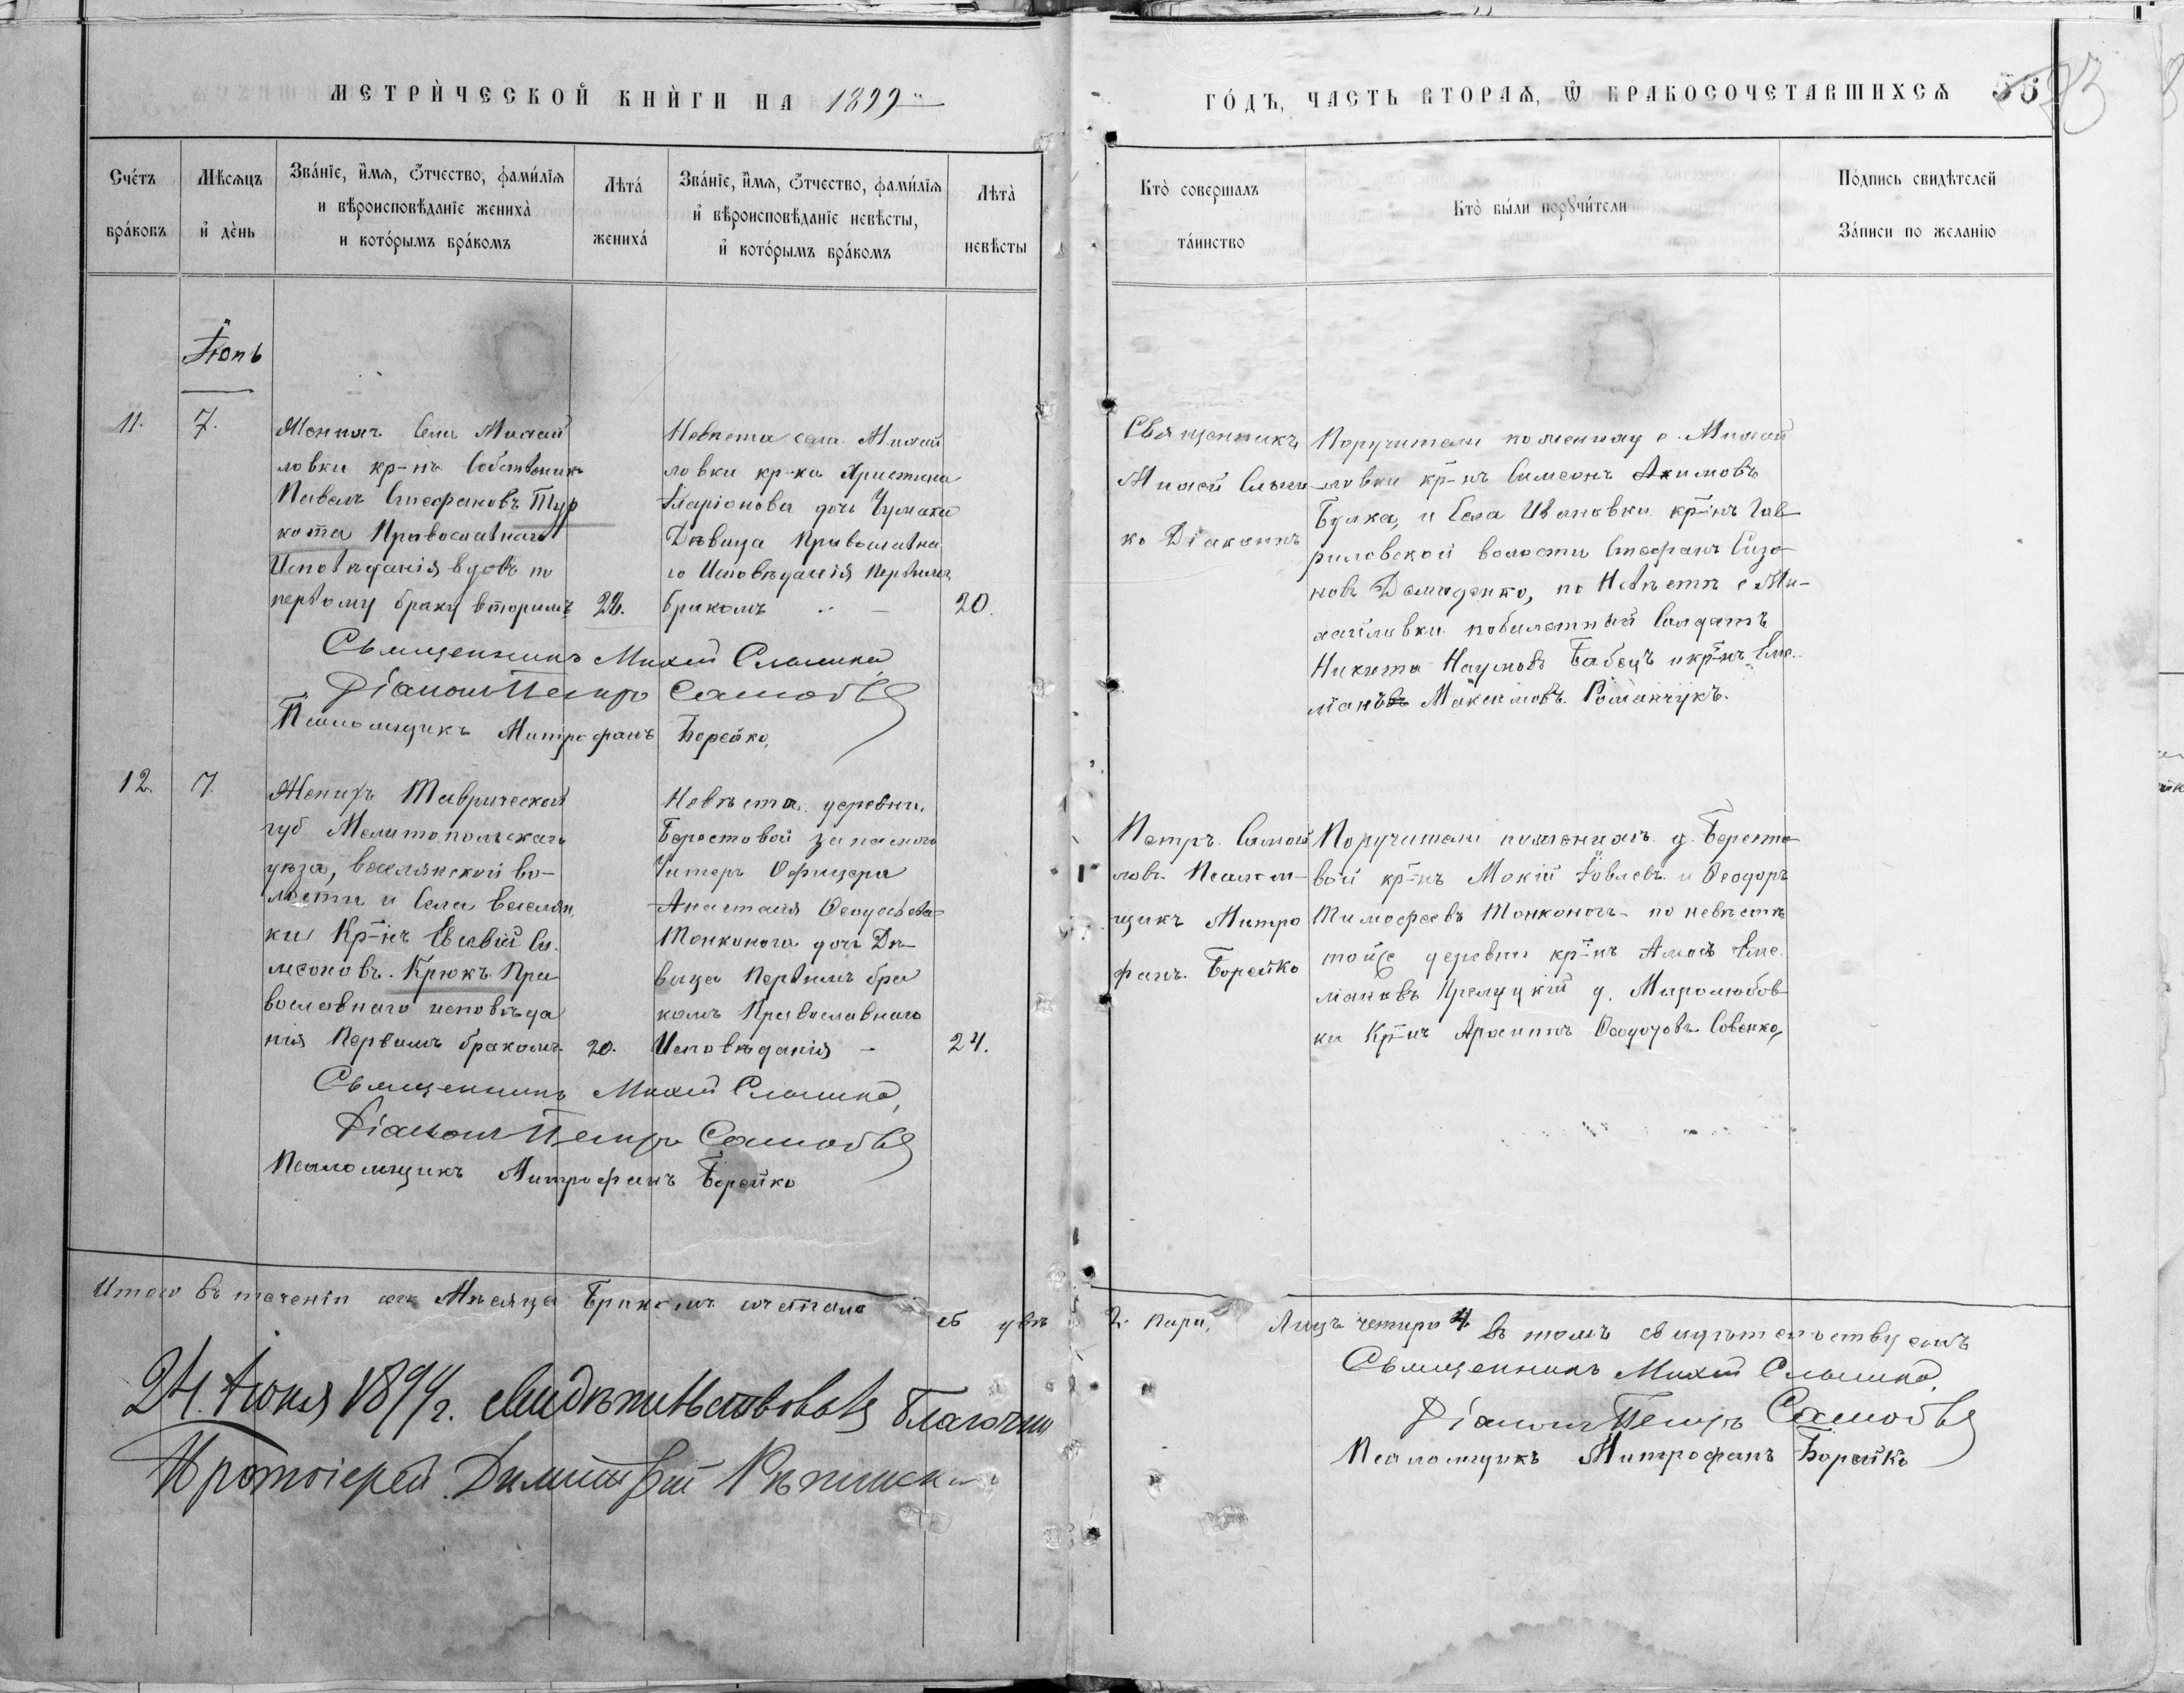 МЕТРИ́ЧЕСКОЙ КНИ́ГИ НА 1899
ГО́ДЪ, ЧАСТЬ ВТОРАѦ, Ѿ БРАКОСОЧЕТАВШИХСѦ 55
Сче́тъ бра́ковъ
Мѣсяцъ и́ де́нь
Зва́нїе, и́мя, о́тчество, фами́лїя
и вѣроисповѣданїе жениха̀
и кото́рымъ бра́комъ
Лѣта́ жениха́
Зва́нїе, и́мя, о́тчество, фами́лїя
и́ вѣроисповѣданїе невѣсты,
и́ кото́рымъ бра́комъ
Лѣта̀ невѣсты
Кто̀ совершалъ та́инство
Кто̀ бы́ли порꙋчи́тели
По́дпись свидѣтелей
За́писи по желанїю
Іюнь
11.
7.
Женихъ Села Михай
ловки кр-нъ Собственикъ
Павелъ Стефановъ Тур
кота Православнаго
Исповѣданія вдовъ по
первому браку вторимъ
Невѣста села Михай
ловки кр-ка Христина
Иларіонова дочь Чумака
Дѣвица Православна
го Исповѣданія Первимъ
бракомъ
20.
Священникъ
Михей
ко Діаконъ
Поручители по жениху с. Михай
ловки кр-нъ Симеонъ Акимовъ
и Села Ивановки кр-нъ Гав
риловской волости Стефанъ Сизо
новъ Демиденко, по Невѣстѣ с Ми-
хайловки побилетный Солдатъ
Никита Наумовъ Бабецъ и кр-нъ Еме
ліанъ Максимовъ Романчукъ.
Священникъ Михей
Діаконъ Петръ
Псаломщикъ Митрофанъ Борейко,
12.
7
Женихъ Таврической
губ Мелитопольскаго
уѣза, веселянской во-
лости и Села Веселян
ки Кр-нъ Евсевій Си
меоновъ Крюкъ Пра
вославнаго исповѣда
нія Первимъ бракомъ
20.
Невѣста деревни
Берестовой запаснаго
Унтеръ Офицера
Анастасія Феодосіева
Тонконога дочь Дѣ
вица Первимъ бра
комъ Православнаго
Исповѣданія –
24.
Петръ Самой
ловъ Псалом-
щикъ Митро
фанъ Борейко
Поручители по женихѣ д. Бересто
вой кр-нъ Мокій Іовлевъ и Феодоръ
Тимофеевъ Тонконогъ – по невѣстѣ
тойже деревни кр-нъ Амосъ Еме
ліановъ д. Миролюбов
ки Кр-нъ Феодоровъ Совенко,
Священникъ Михей
Діаконъ Петръ
Псаломщикъ Митрофанъ Борейко
Итого въ теченіи сего Мѣсяца Бракомъ сочетано двѣ 2. пари, Лицъ четыре 4 въ томъ свидѣтельствуемъ
Священникъ Михей
Діаконъ Петръ
Псаломщикъ Митрофанъ Борейко
24. Іюня 189 г. свидѣтельствовалъ Благочин
Протоіерей Димитрій